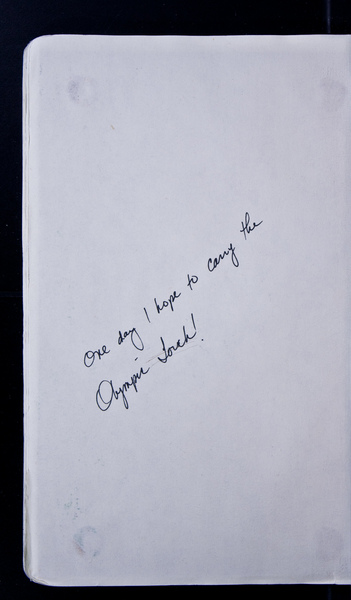 One day I hope to carry the
Olympic Torch!